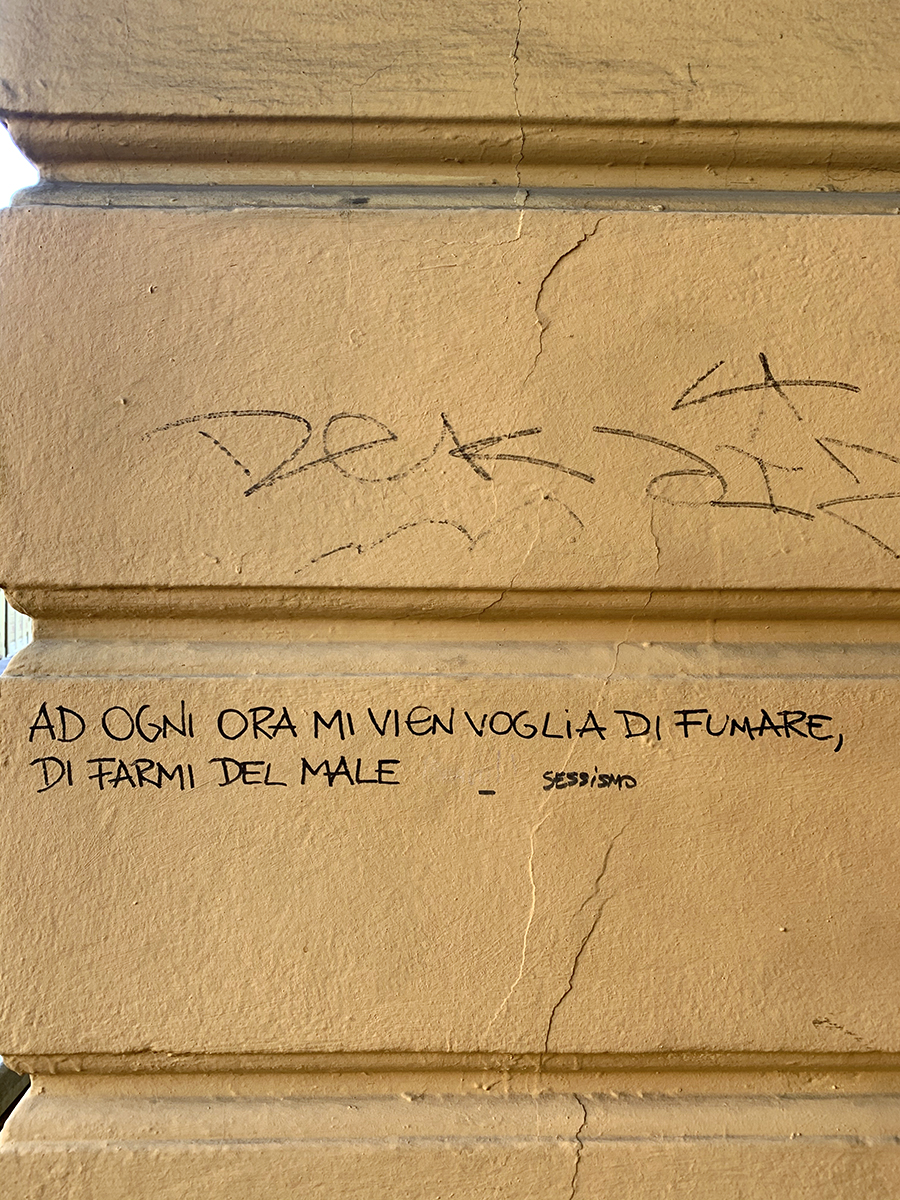 DEK
AD OGNI ORA MI VIEN VOGLIA DI FUMARE,
DI FARMI DEL MALE _ SESSISMO